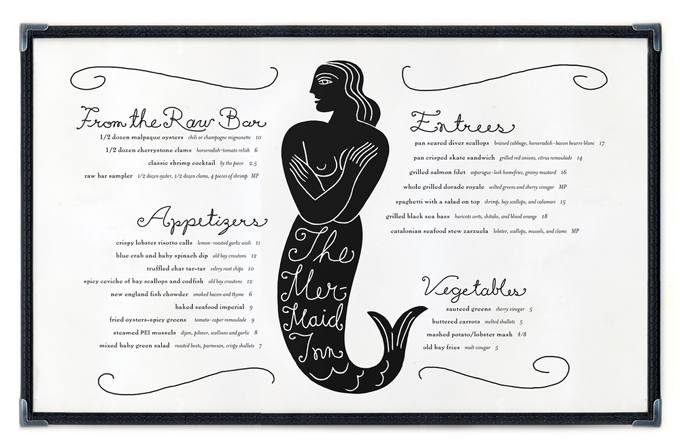 From the Raw Bar
1/2 dozen malpaque oysters chili or champagne mignonette 10
1/2 dozen cherrystone clams horseradish-tomato relish 6
classic shrimp cocktail by the piece 2.5
raw bar sampler 1/2 dozen oyster, 1/2 dozen clams, 4 pieces of shrimp MP
Appetizers
crispy lobster risotto calls lemon-roasted garlic aioli 11
blue crab and baby spinach dip old bay croutons 12
truffled char tar-tar celery root chips 10
spicy ceviche of bay scallops and codfish old bay croutons 12
new england fish chowder smoked bacon and thyme 6
baked seafood imperial 9
fried oysters-spicy greens tomato-caper remoulade 9
steamed PEI mussels dijon, pilsner, scallions and garlic 8
mixed baby green salad roasted beets, parmesan, crispy shallots 7
The
Mer-
Maid
Inn
Entrees
pan seared diver scallops braised cabbage, horseradish-bacon beurre blanc 17
pan crisped skate sandwich grilled red onions, citrus remoulade 14
grilled salmon filet asparagus-leek homefries, grainy mustard 16
whole grilled dorade royale wilted greens and sherry vinegar MP
spaghetti with a salad on top shrimp, bay scallops, and calamari 15
grilled black sea bass haricots verts, shitake, and blood orange 18
catalonian seafood stew zarzuela lobster, scallops, mussels, and clams MP
Vegetables
sauteed greens sherry vinegar 5
buttered carrots melted shallots 5
mashed potato/lobster mash 4/8
old bay fries malt vinegar 5